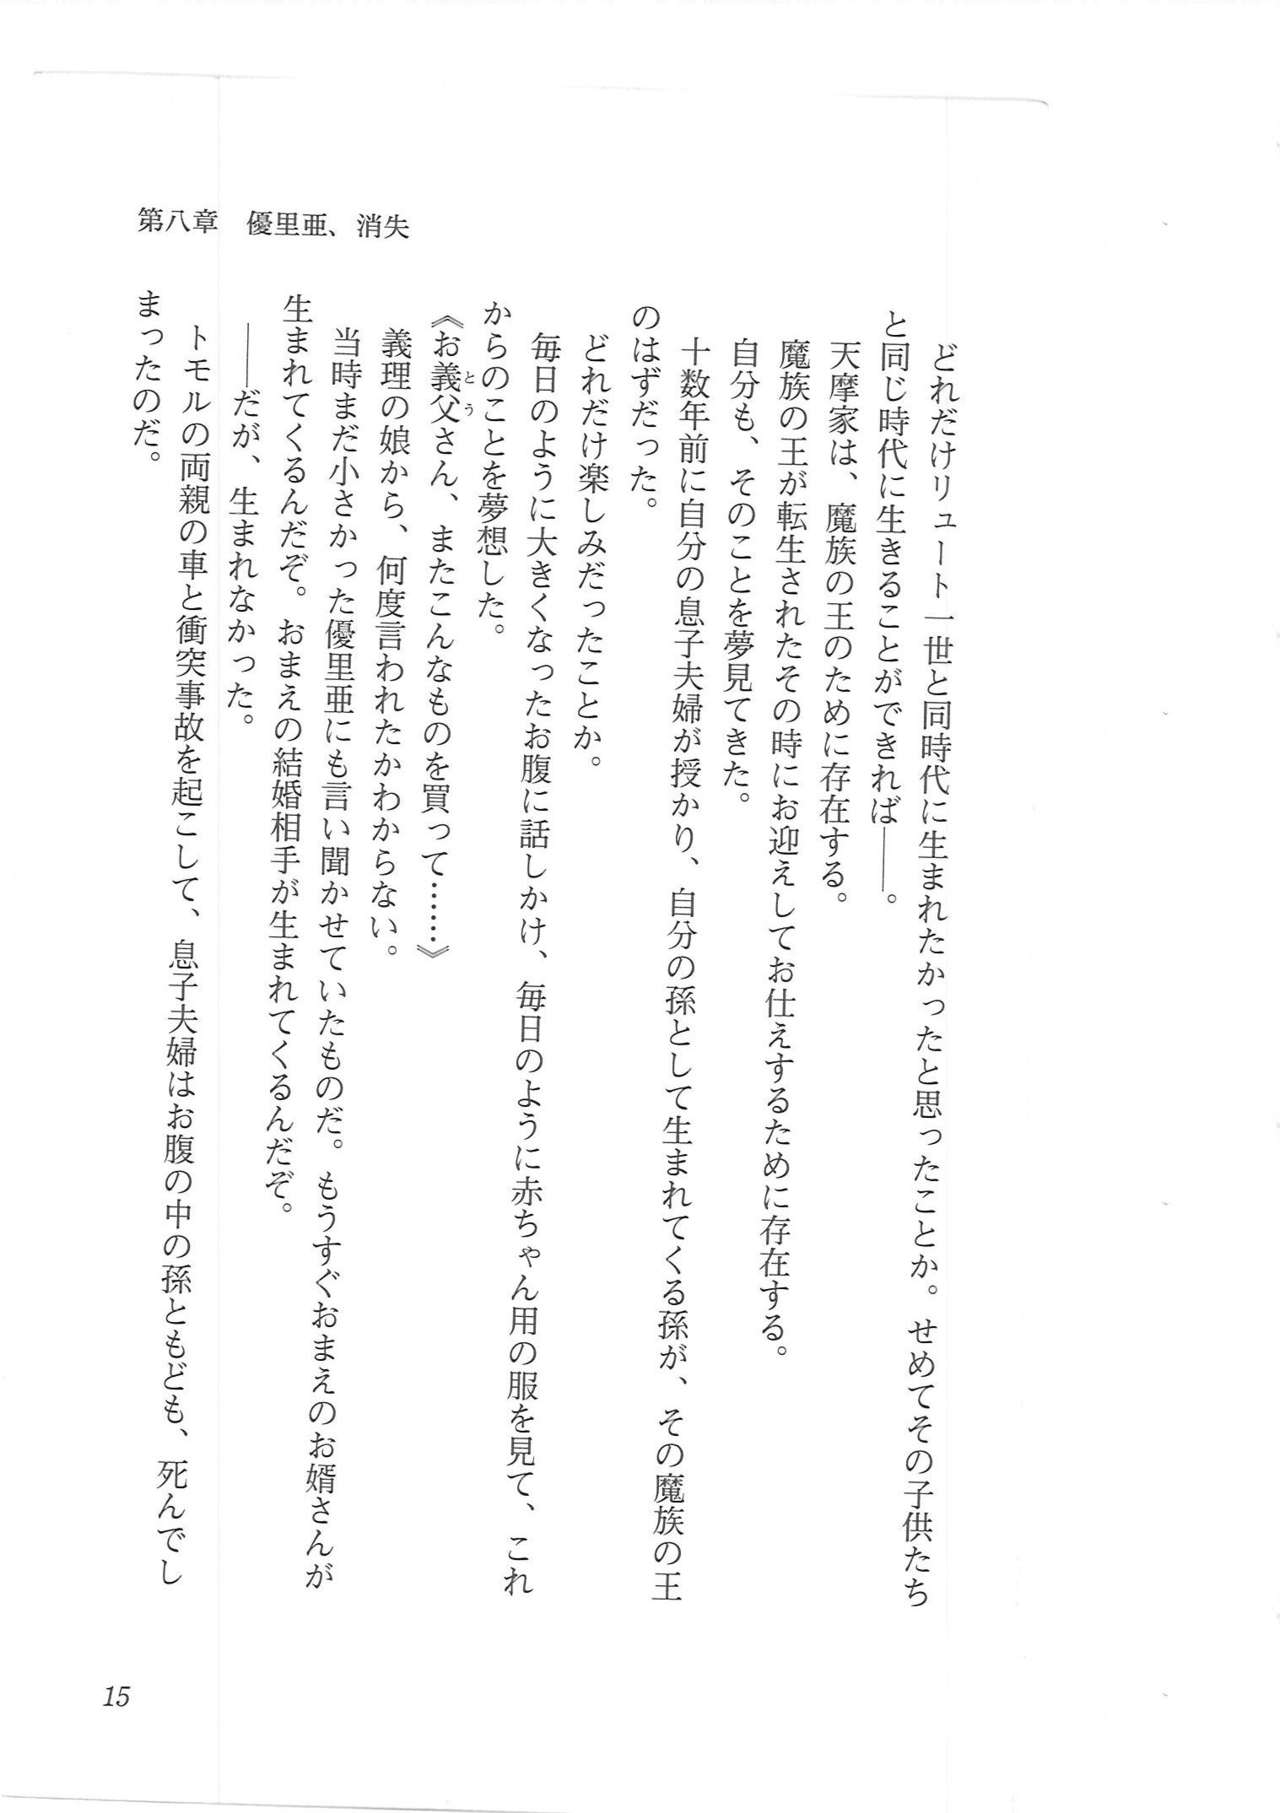 第八章　優里亜、消失
どれだけリュート一世と同時代に生まれたかったと思ったことか。せめてその子供たち
と同じ時代に生きることができれば――。
天摩家は、魔族の王のために存在する。
魔族の王が転生されたその時にお迎えしてお仕えするために存在する。
自分も、そのことを夢見てきた。
十数年前に自分の息子夫婦が授かり、自分の孫として生まれてくる孫が、その魔族の王
のはずだった。
どれだけ楽しみだったことか。
毎日のように大きくなったお腹に話しかけ、毎日のように赤ちゃん用の服を見て、これ
からのことを夢想した。
《お義父さん、またこんなものを買って……》
とう
義理の娘から、何度言われたかわからない。
当時まだ小さかった優里亜にも言い聞かせていたものだ。もうすぐおまえのお婿さんが
生まれてくるんだぞ。おまえの結婚相手が生まれてくるんだぞ。
――だが、生まれなかった。
トモルの両親の車と衝突事故を起こして、息子夫婦はお腹の中の孫ともども、死んでし
まったのだ。
15